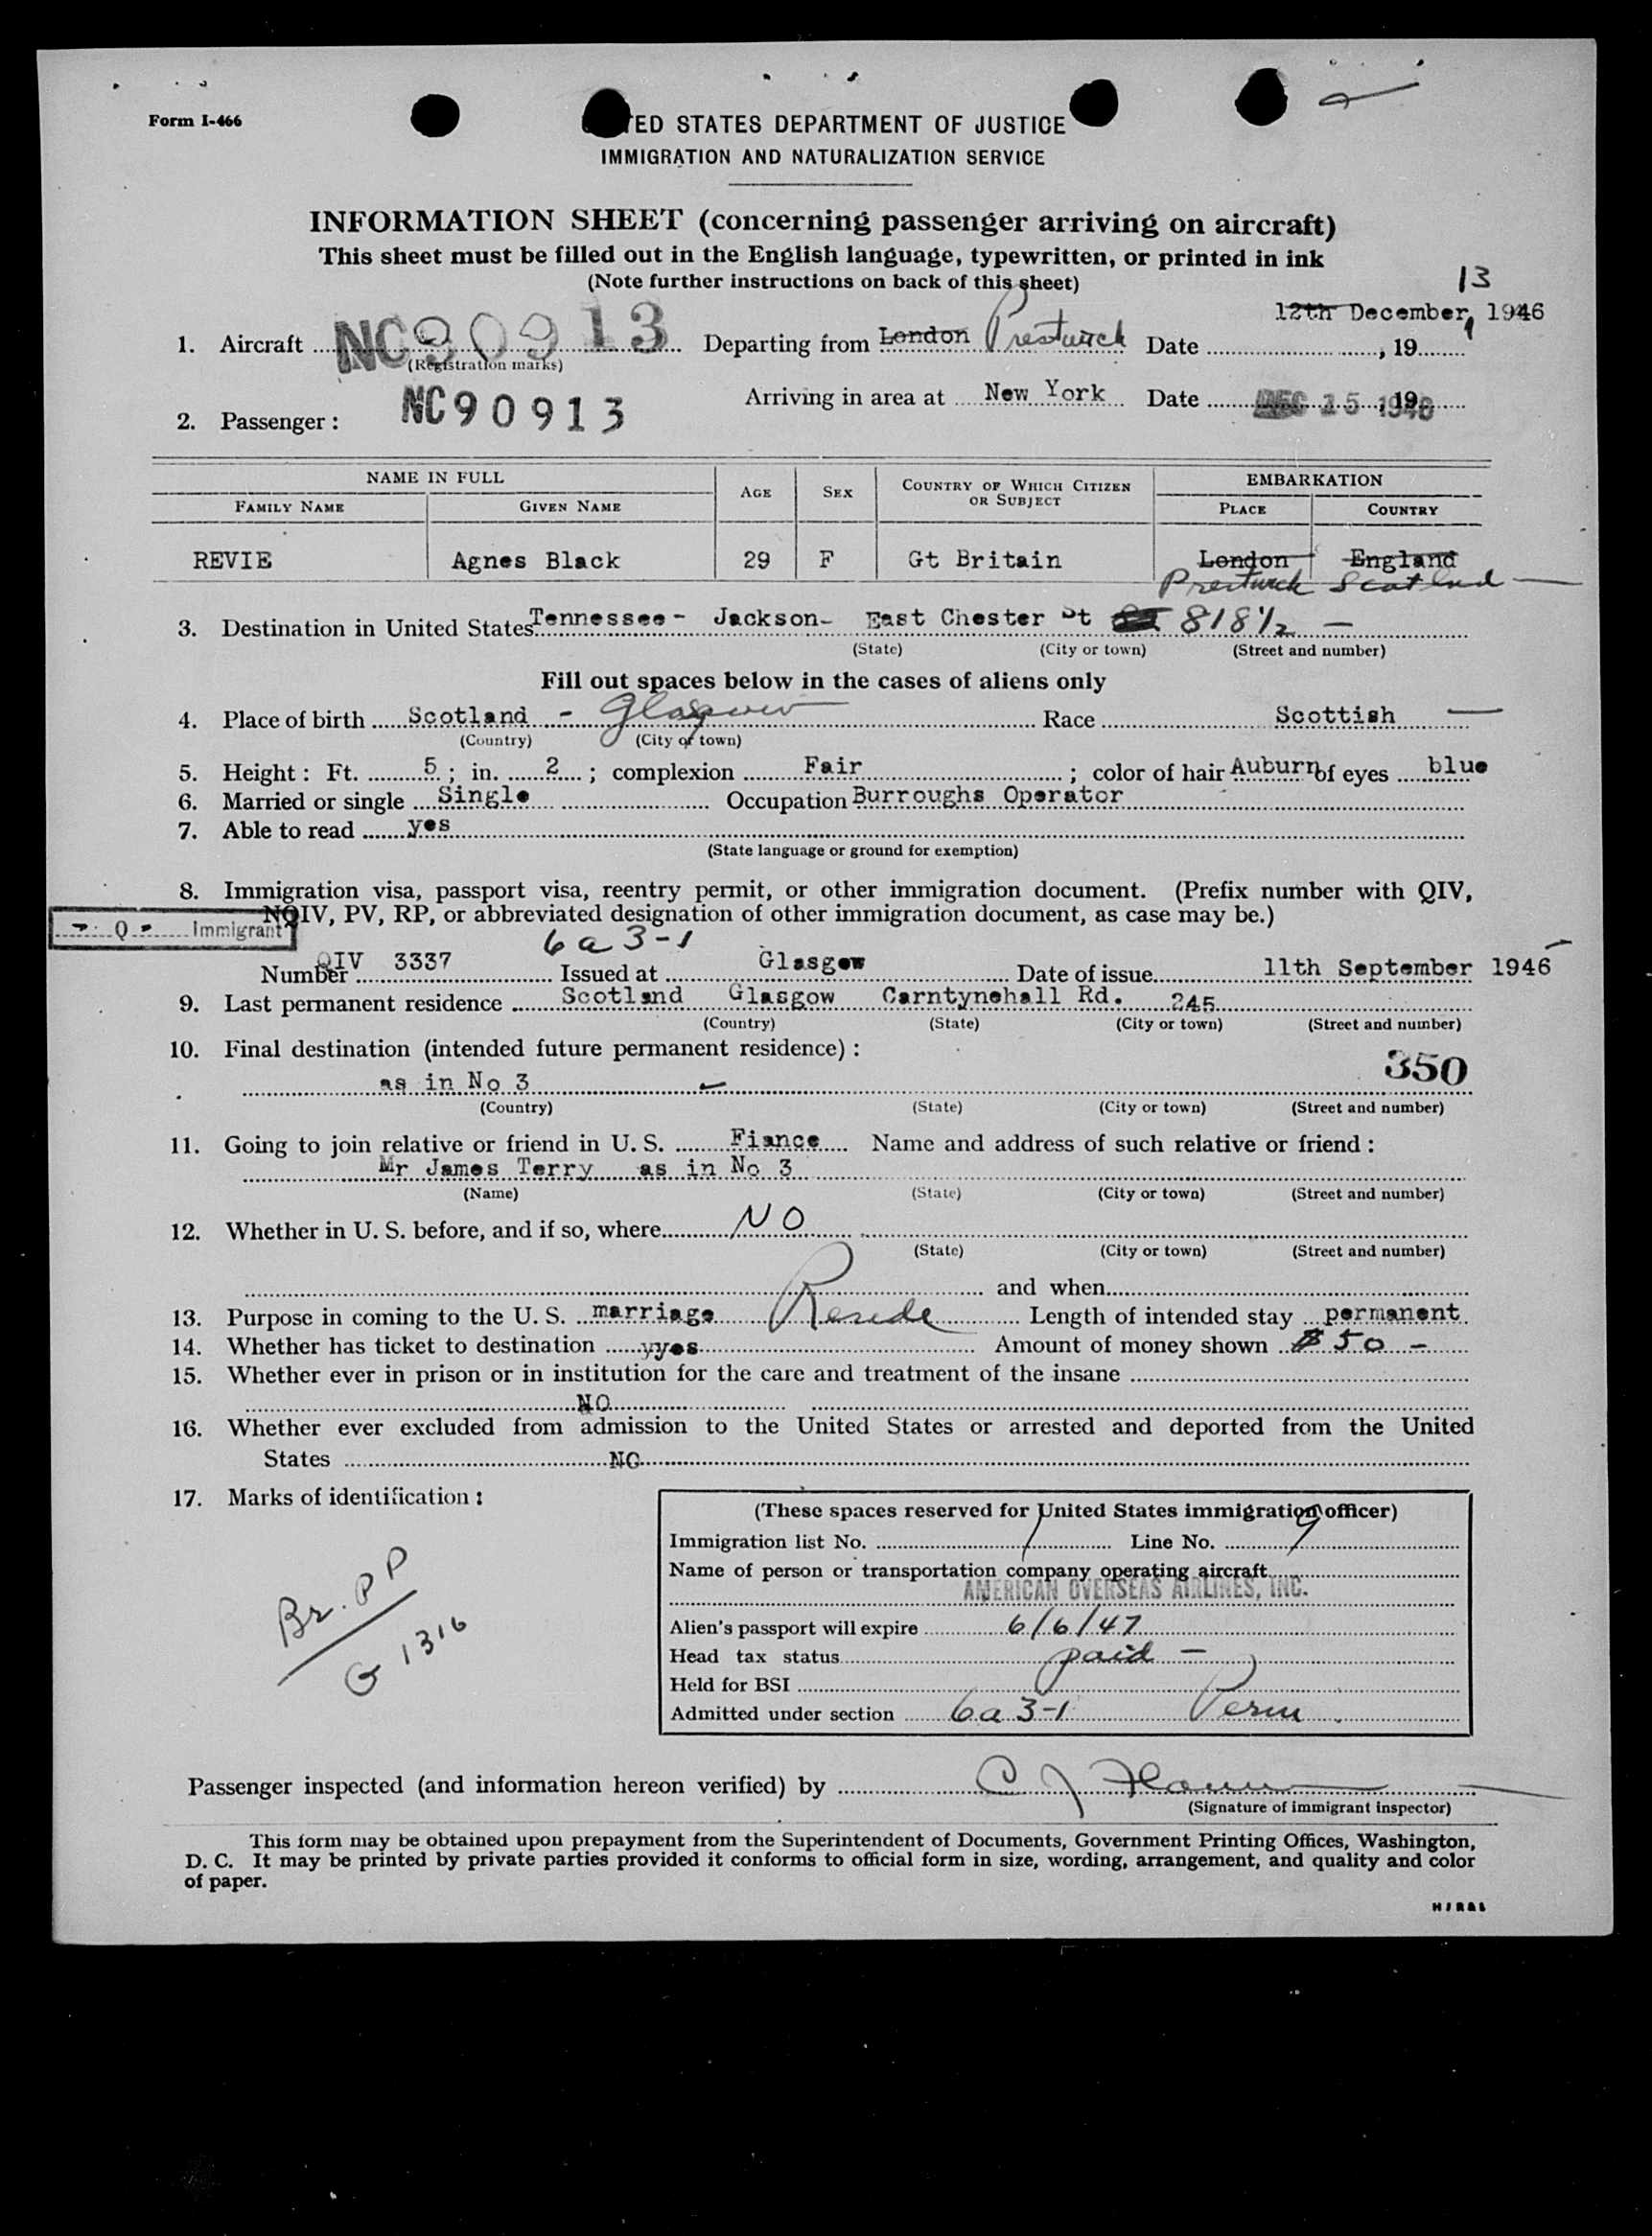 Form I-466
UNITED STATES DEPARTMENT OF JUSTICE
IMMIGRATION AND NATURALIZATION SERVICE
INFORMATION SHEET (concerning passenger arriving on aircraft)
This sheet must be filled out in the English language, typewritten, or printed in ink
(Note further instructions on back of this sheet)
13
12th December, 1946
1. Aircraft NC90913 Departing from London Prestwick Date ..., 19...
(Registration marks)
Arriving in area at New York Date DEC 15 1946, 19
2. Passenger: NC90913
NAME IN FULL AGE SEX COUNTRY OF WHICH CITIZEN OR SUBJECT EMBARKATION
FAMILY NAME GIVEN NAME PLACE COUNTRY
REVIE Agnes Black 29 F Gt Britain London England
Prestwick Scotland
3. Destination in United States Tennessee- Jackson- East Chester St 818½ -
(State) (City or town) (Street and number)
Fill out spaces below in the cases of aliens only
4. Place of birth Scotland - Glasgow Race Scottish
(Country) (City or town)
5. Height: Ft. 5; in. 2; complexion Fair; color of hair Auburn of eyes blue
6. Married or single Single Occupation Burroughs Operator
7. Able to read yes
(State language or ground for exemption)
8. Immigration visa, passport visa, reentry permit, or other immigration document. (Prefix number with QIV,
NQIV, PV, RP, or abbreviated designation of other immigration document, as case may be.)
- Q - Immigrant
6a3-1
Number QIV 3337 Issued at Glasgow Date of issue 11th September 1946
9. Last permanent residence Scotland Glasgow Carntynehall Rd. 245
(Country) (State) (City or town) (Street and number)
10. Final destination (intended future permanent residence):
350
as in No 3
(Country) (State) (City or town) (Street and number)
11. Going to join relative or friend in U. S. Fiance Name and address of such relative or friend:
Mr James Terry as in No 3
(Name) (State) (City or town) (Street and number)
12. Whether in U. S. before, and if so, where NO
(State) (City or town) (Street and number)
and when
13. Purpose in coming to the U. S. marriage Reside Length of intended stay permanent
14. Whether has ticket to destination yyes Amount of money shown $50 -
15. Whether ever in prison or in institution for the care and treatment of the insane
NO
16. Whether ever excluded from admission to the United States or arrested and deported from the United
States NO
17. Marks of identification:
Br. PP
G 1316
(These spaces reserved for United States immigration officer)
Immigration list No. 1 Line No. 9
Name of person or transportation company operating aircraft
AMERICAN OVERSEAS AIRLINES, INC.
Alien's passport will expire 6/6/47
Head tax status paid -
Held for BSI
Admitted under section 6a3-1 Perm
Passenger inspected (and information hereon verified) by C J
(Signature of immigrant inspector)
This form may be obtained upon prepayment from the Superintendent of Documents, Government Printing Offices, Washington,
D. C. It may be printed by private parties provided it conforms to official form in size, wording, arrangement, and quality and color
of paper.